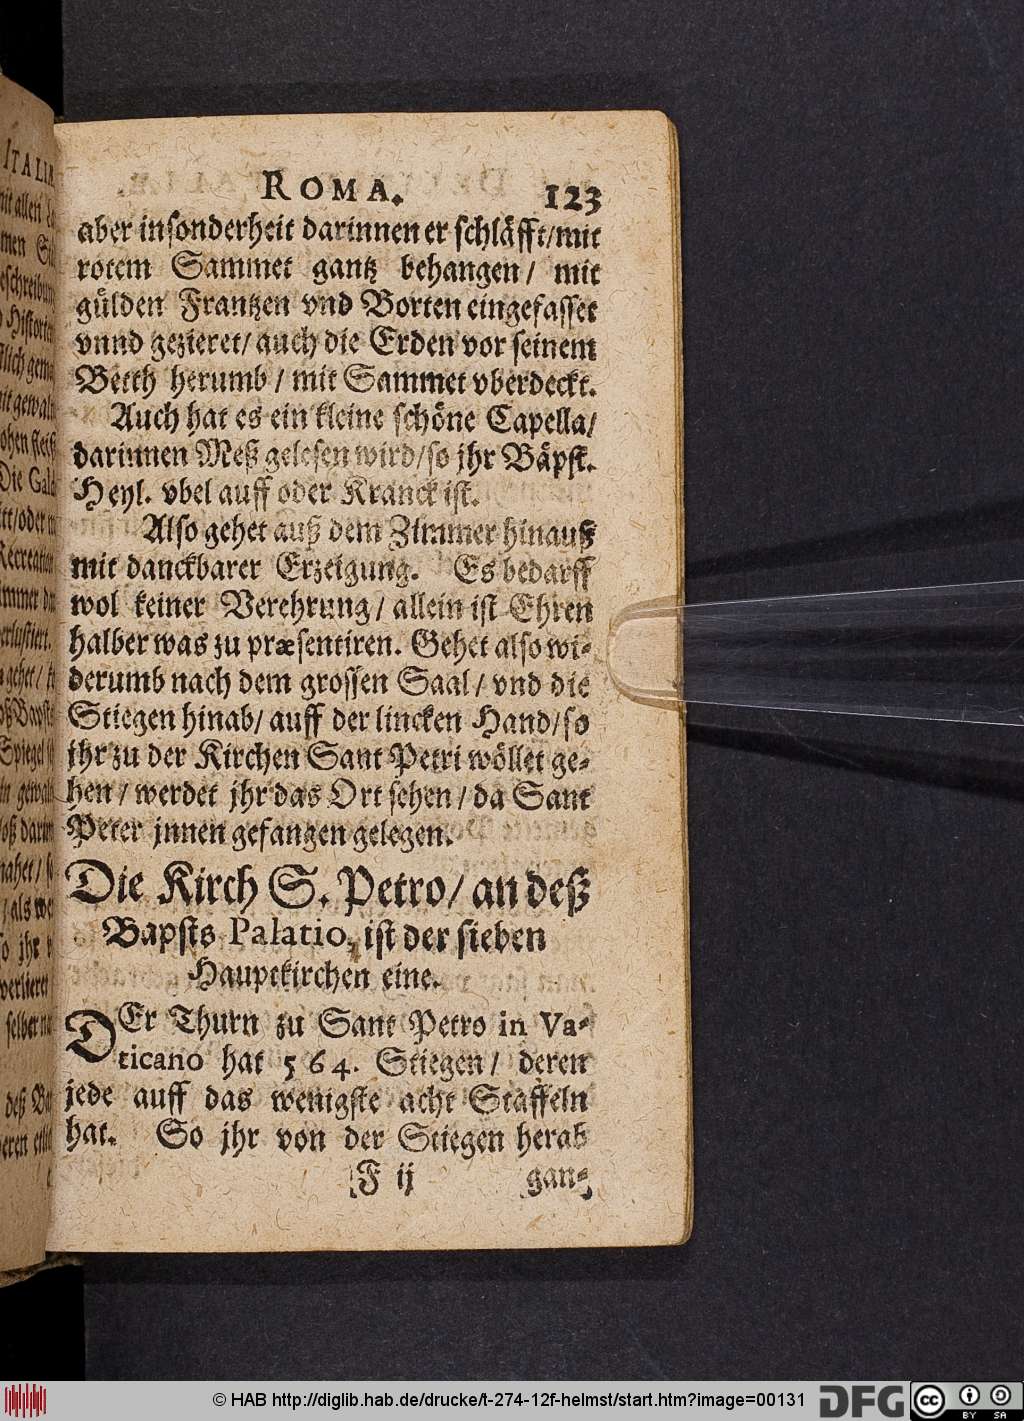 ITALIÆ
ROMA. 123
aber insonderheit darinnen er schläfft/mit
rotem Sammet gantz behangen/ mit
gülden Frantzen vnd Borten eingefasset
vnnd gezieret/ auch die Erden vor seinem
Betth herumb / mit Sammet vberdeckt.
Auch hat es ein kleine schöne Capella/
darinnen Meß gelesen wird/so jhr Bäpst.
Heyl. vbel auff oder Kranck ist.
Also gehet auß dem Zimmer hinauß
mit danckbarer Erzeigung. Es bedarff
wol keiner Verehrung/ allein ist Ehren
halber was zu præsentiren. Gehet also wi-
derumb nach dem grossen Saal / vnd die
Stiegen hinab/ auff der lincken Hand/so
jhr zu der Kirchen Sant Petri wöllet ge-
hen / werdet jhr das Ort sehen / da Sant
Peter jnnen gefangen gelegen.
Die Kirch S. Petro/ an deß
Bapsts Palatio, ist der sieben
Hauptkirchen eine.
DEr Thurn zu Sant Petro in Va-
ticano hat 564. Stiegen/ deren
jede auff das wenigste acht Staffeln
hat. So jhr von der Stiegen herab
F ij gan-
© HAB http://diglib.hab.de/drucke/t-274-12f-helmst/start.htm?image=00131 DFG cc BY SA